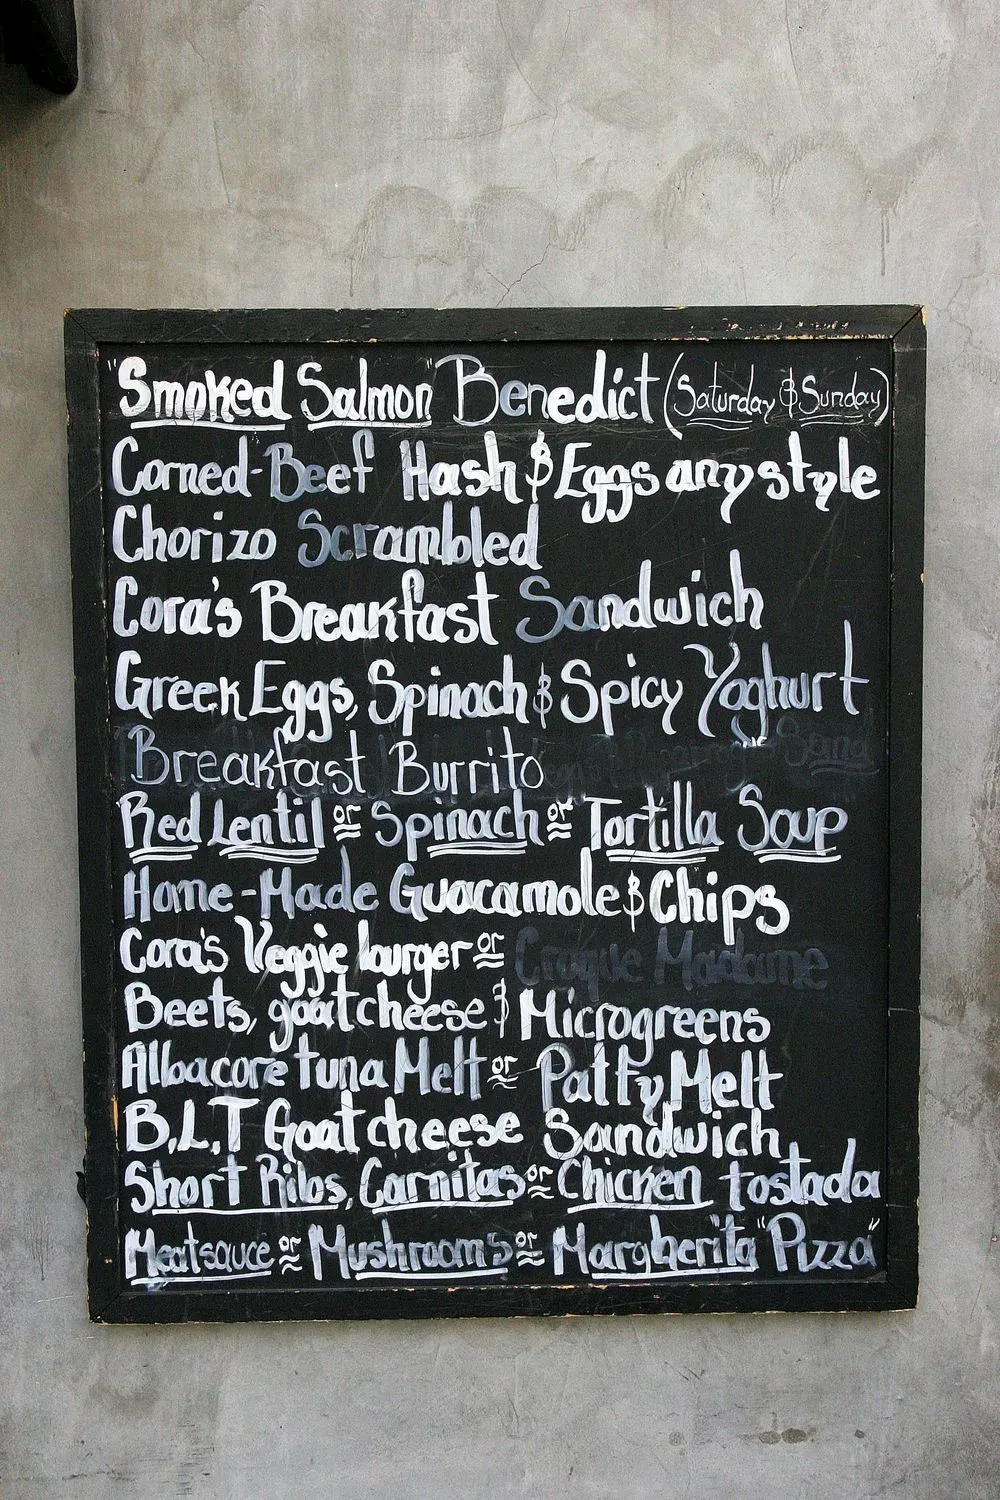 "Smoked Salmon" Benedict (Saturday & Sunday)
Corned-Beef Hash & Eggs any style
Chorizo Scrambled
Cora's Breakfast Sandwich
Greek Eggs, Spinach & Spicy Yoghurt
Breakfast Burrito
Red Lentil or Spinach or Tortilla Soup
Home-Made Guacamole & Chips
Cora's Veggie burger or Croque Madame
Beets, goat cheese & Microgreens
Albacore tuna Melt or Patty Melt
B.L.T Goat cheese Sandwich
Short Ribs, Carnitas or Chicken tostada
Meatsauce or Mushrooms or Margherita "Pizza"